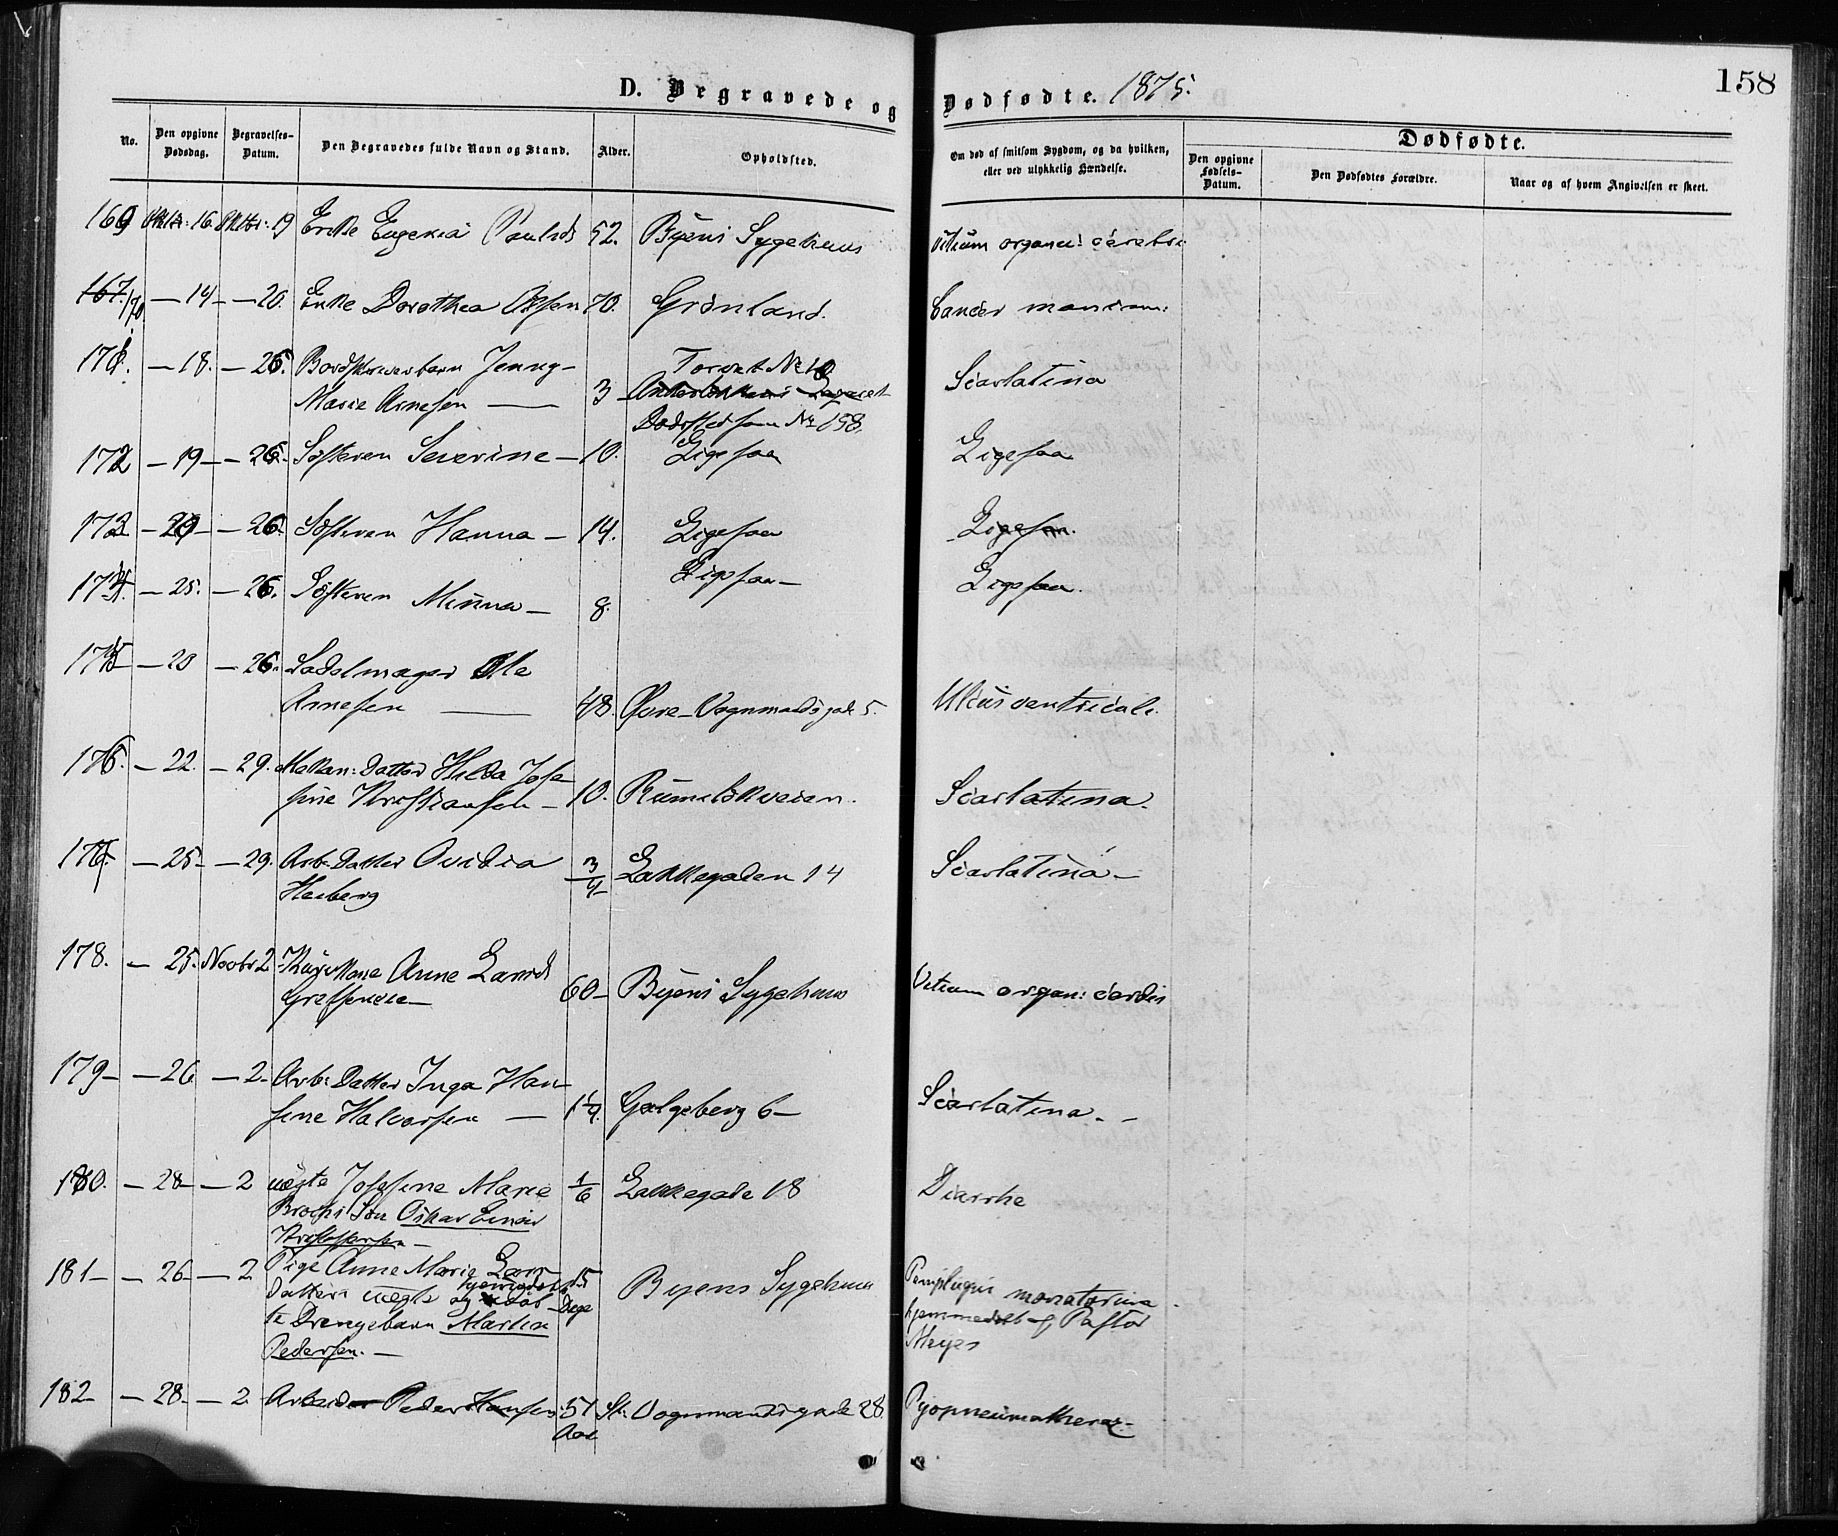 158
D. Begravede og Dødfødte. 1875.
No. Den opgivne Dødsdag. Begravelses-Datum. Den Begravedes fulde Navn og Stand. Alder. Opholdsted. Om død af smitsom Sygdom, og da hvilken, eller ved ulykkelig Hændelse.
Dødfødte.
Den opgivne Fødsels-Datum. Den Dødfødtes Forældre. Naar og af hvem Angivelsen er skeet.
169 Oktbr: 16. Oktbr: 19 Enke Eugenia 52. Byens Sygehuus Vitium organi: cerebri
167. 170. — 14 — — 20. Enke Dorothea Olsen 70. Grönland. Cancer
171. — 18. — 26. Jenny Torvet No 10
Marie Arnesen — 3 Scarlatina
Dødsted No 158.
172 — 19 — — 26. Søsteren Severine — 10. Ligesaa Ligesaa
173 — 20 — — 26. Søsteren Hanna — 14. Ligesaa Ligesaa.
174. — 25. — 26. Søsteren Minna — 8. Ligesaa — Ligesaa.
175 — 20 — 26. Sadelmager Ole
Arnesen — 48. Øvre Vognmandsgade 5. Ulcus ventriculi.
176. — 22. — 29. Datter Hilda Jose-
fine Kristiansen — 10. Rumelökveien. Scarlatina.
177. — 25 — — 29. Arb: Datter Ovidia
Heiberg 3/4 Lakkegaden 14 Scarlatina —
178. — 25. Novbr 2 Anne Larsd
60 — Byens Sygehuus Vitium organ: cordis
179 — — 26 — 2 — Arb: Datter Inga Han-
sine Halvorsen — 1 1/4. Galgeberg 6 — Scarlatina. —
180. — 28 — — 2 uægte Josefine Marie 1/6 Lakkegade 18 Diarrhe
Søn Oskar Einar
Kristoffersen —
181 — — 26 — — 2 Pige Anne Marie Lars-
datters uægte hjemmedøbt 15 Dage Byens Sygehuus
te Drengebarn Martin hjemmedøbt af Pastor
Pedersen. — Meyer
182 — 28. — 2 Arbeider Peder Hansen. 51 Aar St: Vognmandsgade 28. Pyopneumothorax.